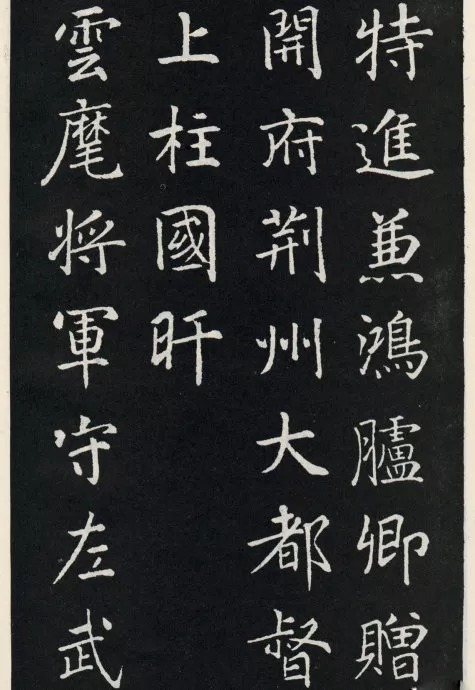 特進兼鴻臚卿贈
開府荆州大都督
上柱國旰
雲麾將軍守左武